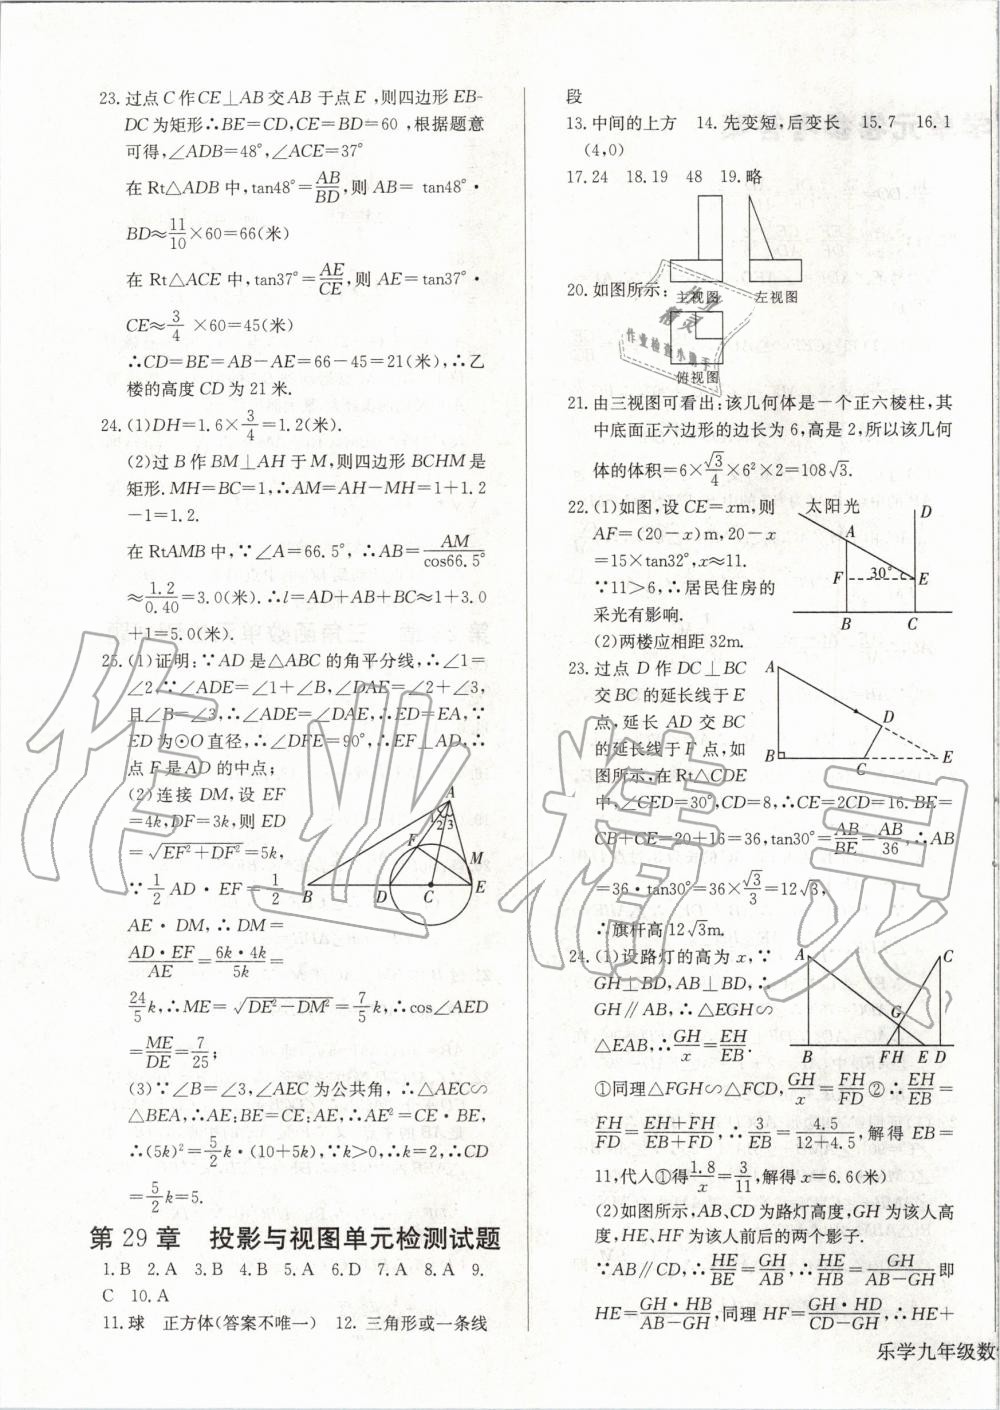 23.过点C作CE⊥AB交AB于点E,则四边形EB-
DC为矩形∴BE=CD,CE=BD=60,根据题意
可得,∠ADB=48°,∠ACE=37°
在Rt△ADB中,tan48°=AB/BD,则AB= tan48°·
BD≈11/10×60=66(米)
在Rt△ACE中,tan37°=AE/CE,则AE=tan37°·
CE≈3/4×60=45(米)
∴CD=BE=AB-AE=66-45=21(米),∴乙
楼的高度CD为21米.
24.(1)DH=1.6×3/4=1.2(米).
(2)过B作BM⊥AH于M,则四边形BCHM是
矩形.MH=BC=1,∴AM=AH-MH=1+1.2
-1=1.2.
在RtAMB中,∵∠A=66.5°,∴AB=AM/cos66.5°
≈1.2/0.40=3.0(米).∴l=AD+AB+BC≈1+3.0
+1=5.0(米).
25.(1)证明:∵AD是△ABC的角平分线,∴∠1=
∠2,∵∠ADE=∠1+∠B,∠DAE=∠2+∠3,
且∠B=∠3,∴∠ADE=∠DAE,∴ED=EA,∵
ED为⊙O直径,∴∠DFE=90°,∴EF⊥AD,∴
点F是AD的中点;
(2)连接DM,设EF
=4k,DF=3k,则ED
=√(EF²+DF²)=5k,
∵1/2AD·EF=1/2
AE·DM,∴DM=
AD·EF/AE=6k·4k/5k=
24/5k,∴ME=√(DE²-DM²)=7/5k,∴cos∠AED
=ME/DE=7/25;
(3)∵∠B=∠3,∠AEC为公共角,∴△AEC∽
△BEA,∴AE:BE=CE:AE,∴AE²=CE·BE,
∴(5k)²=5/2k·(10+5k),∵k>0,∴k=2,∴CD
=5/2k=5.
A
1 2 3
F
M
B
D
C
E
第29章 投影与视图单元检测试题
1.B 2.A 3.B 4.B 5.A 6.D 7.A 8.A 9.
C 10.A
11.球 正方体(答案不唯一) 12.三角形或一条线
段
13.中间的上方 14.先变短,后变长 15.7 16.1
(4,0)
17.24 18.19 48 19.略
20.如图所示:
主视图 左视图
俯视图
21.由三视图可看出:该几何体是一个正六棱柱,其
中底面正六边形的边长为6,高是2,所以该几何
体的体积=6×√3/4×6²×2=108√3.
22.(1)如图,设CE=xm,则
AF=(20-x)m,20-x
=15×tan32°,x≈11.
∵11>6,∴居民住房的
采光有影响.
(2)两楼应相距32m.
太阳光
D
A
F
30°
E
B
C
23.过点D作DC⊥BC
交BC的延长线于E
点,延长AD交BC
的延长线于F点,如
图所示,在Rt△CDE
中,∠CED=30°,CD=8,∴CE=2CD=16.BE=
CB+CE=20+16=36,tan30°=AB/BE=AB/36,∴AB
=36·tan30°=36×√3/3=12√3,
∴旗杆高12√3m.
A
D
B
C
E
24.(1)设路灯的高为x,∵
GH⊥BD,AB⊥BD,∴
GH∥AB,∴△EGH∽
△EAB,∴GH/x=EH/EB.
①同理△FGH∽△FCD,GH/x=FH/FD②∴EH/EB=
FH/FD=EH+FH/EB+FD,∴3/EB=4.5/12+4.5,解得EB=
11,代人①得1.8/x=3/11,解得x=6.6(米)
(2)如图所示,AB、CD为路灯高度,GH为该人高
度,HE、HF为该人前后的两个影子.
∵AB∥CD,∴HE/BE=GH/AB,∴HE/HB=GH/AB-GH即
HE=GH·HB/AB-GH,同理HF=GH·HD/CD-GH,∴HE+
A
C
G
B
F H
E D
乐学九年级数
作业精灵
作业检查小助手
作业精灵